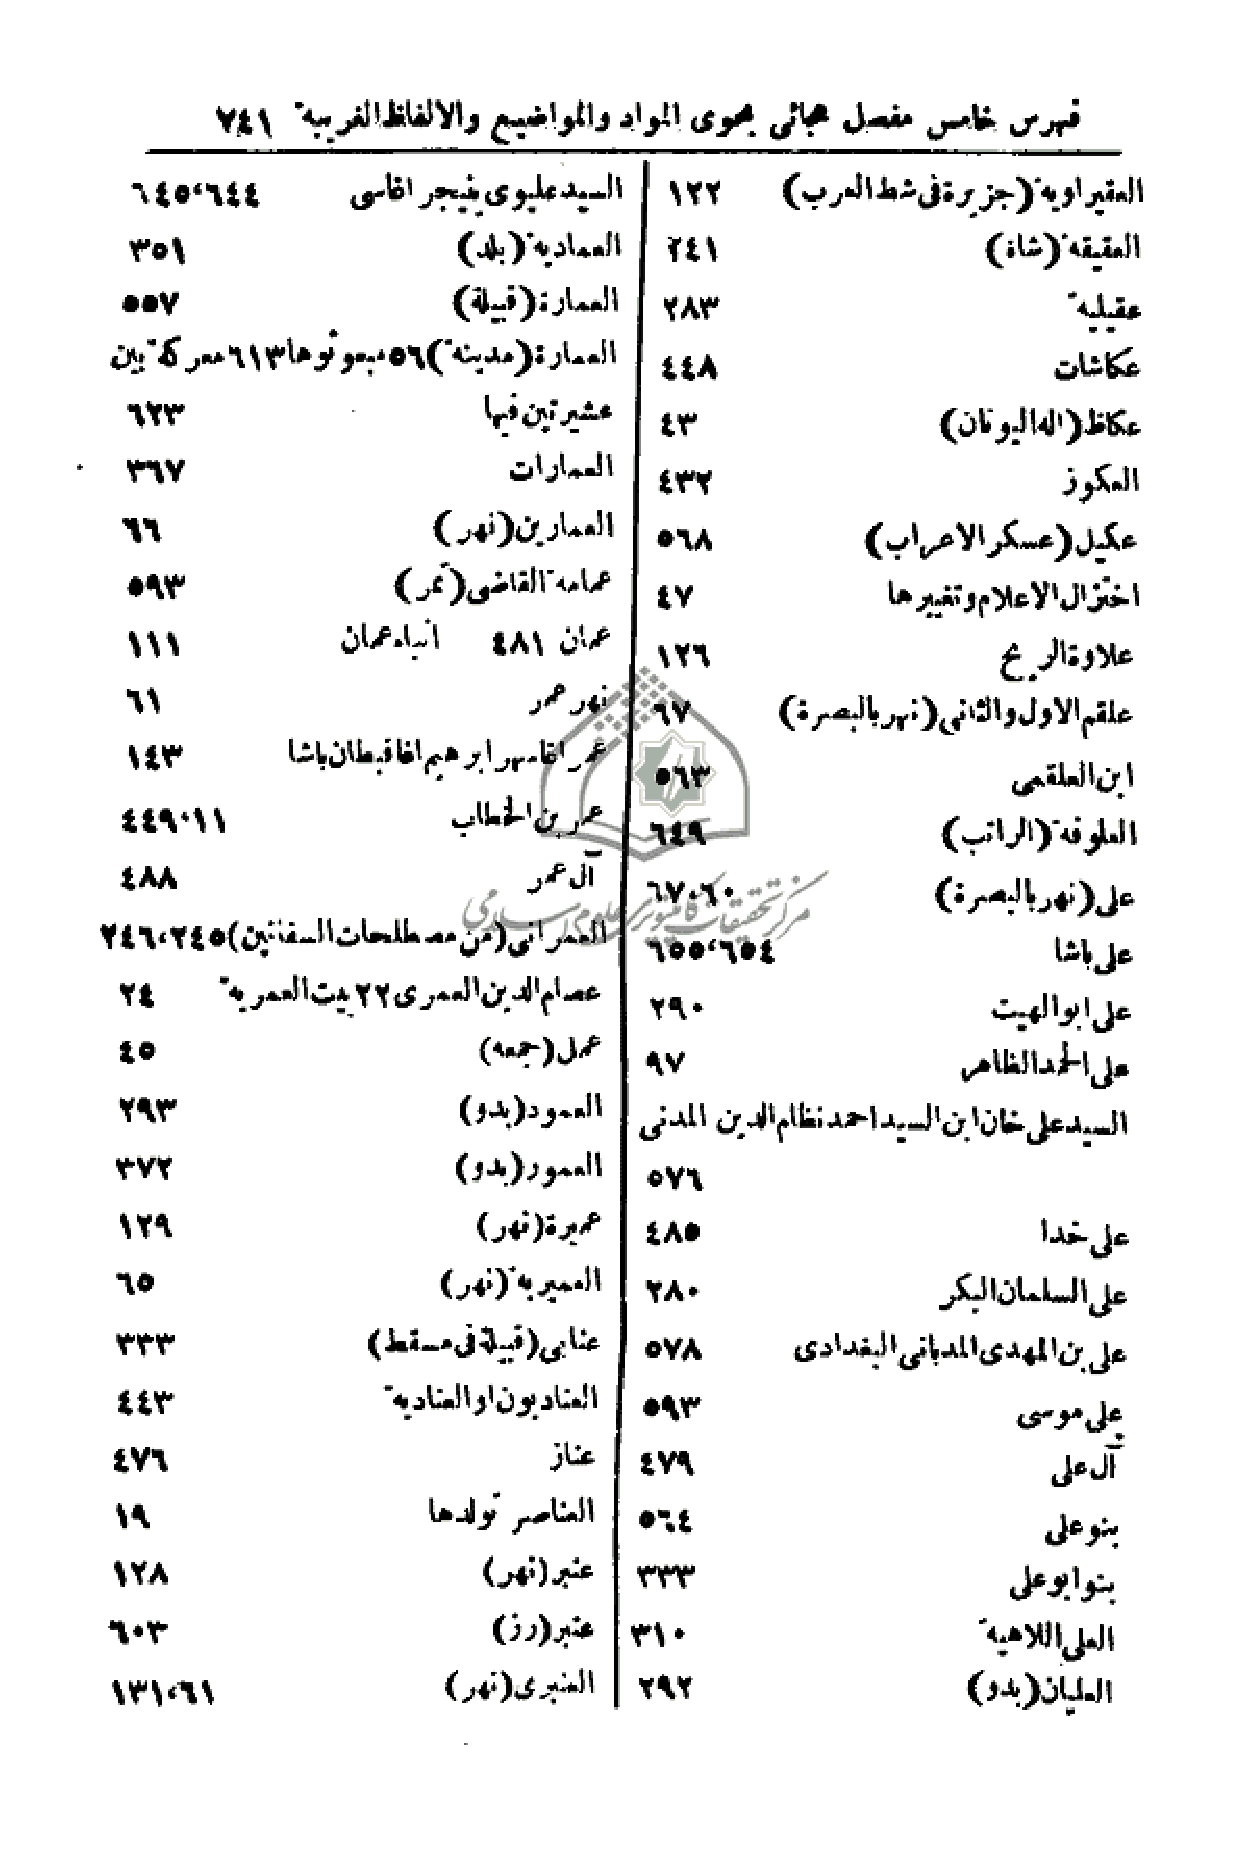 فهرس خامس مفصل هجائي يحوى المواد والمواضيع والالفاظ الغريبة ٧٤١
العقيراوية (جزيرة في شط العرب) ١٢٢
العقيقة (شاة) ٢٤١
عقيلية ٢٨٣
عكاشات ٤٤٨
عكاظ (اله اليونان) ٤٣
العكوز ٤٣٢
عكيل (عسكر الاعراب) ٥٦٨
اختزال الاعلام وتغييرها ٤٧
علاوة الريح ١٢٦
علقم الاول والثاني (نهر بالبصرة) ٦٧
ابن العلقمي ٥٦٣
العلوفة (الراتب) ٦٤٩
على (نهر بالبصرة) ٦٧،٦٠
على باشا ٦٥٥،٦٥٤
على ابو الهيت ٢٩٠
على الحمد الظاهر ٩٧
السيد على خان ابن السيد احمد نظام الدين المدنى
٥٧٦
على خدا ٤٨٥
على السلمان البكر ٢٨٠
على بن المهدى المدباني البغدادى ٥٧٨
على موسى ٥٩٣
آل على ٤٧٩
بنو على ٥٦٤
بنو ابو على ٣٣٣
العلى اللاهية ٣١٠
العليان (بدو) ٢٩٢
السيد عليوى ينيجر اقاسى ٦٤٥،٦٤٤
العمادية (بلد) ٣٥١
العمارة (قبيلة) ٥٥٧
العمارة (مدينة) ٥٦ مبعوثوها ٦١٣ معركة بين
عشيرتين فيها ٦٢٣
العمارات ٣٦٧
العمارين (نهر) ٦٦
عمامة القاضى (تمر) ٥٩٣
عمان ٤٨١ انباء عمان ١١١
نهر عمر ٦١
عمر اقا مهر ابرهيم اغا قبطان باشا ١٤٣
عمر بن الخطاب ٤٤٩،١١
آل عمر ٤٨٨
العمراني (من مصطلحات السفائنين) ٢٤٦،٢٤٥
عصام الدين العمرى ٢٢ بيت العمرية ٢٤
عمل (جمعه) ٤٥
العمود (بدو) ٢٩٣
العمور (بدو) ٣٧٢
عميرة (نهر) ١٢٩
العميرية (نهر) ٦٥
عنابي (قبيلة في مسقط) ٣٣٣
العناديون او العنادية ٤٤٣
عناز ٤٧٦
العناصر تولدها ١٩
عنبر (نهر) ١٢٨
عنبر (رز) ٦٠٣
العنبرى (نهر) ١٣١،٦١
مركز تحقيقات كامپيوترى علوم اسلامى